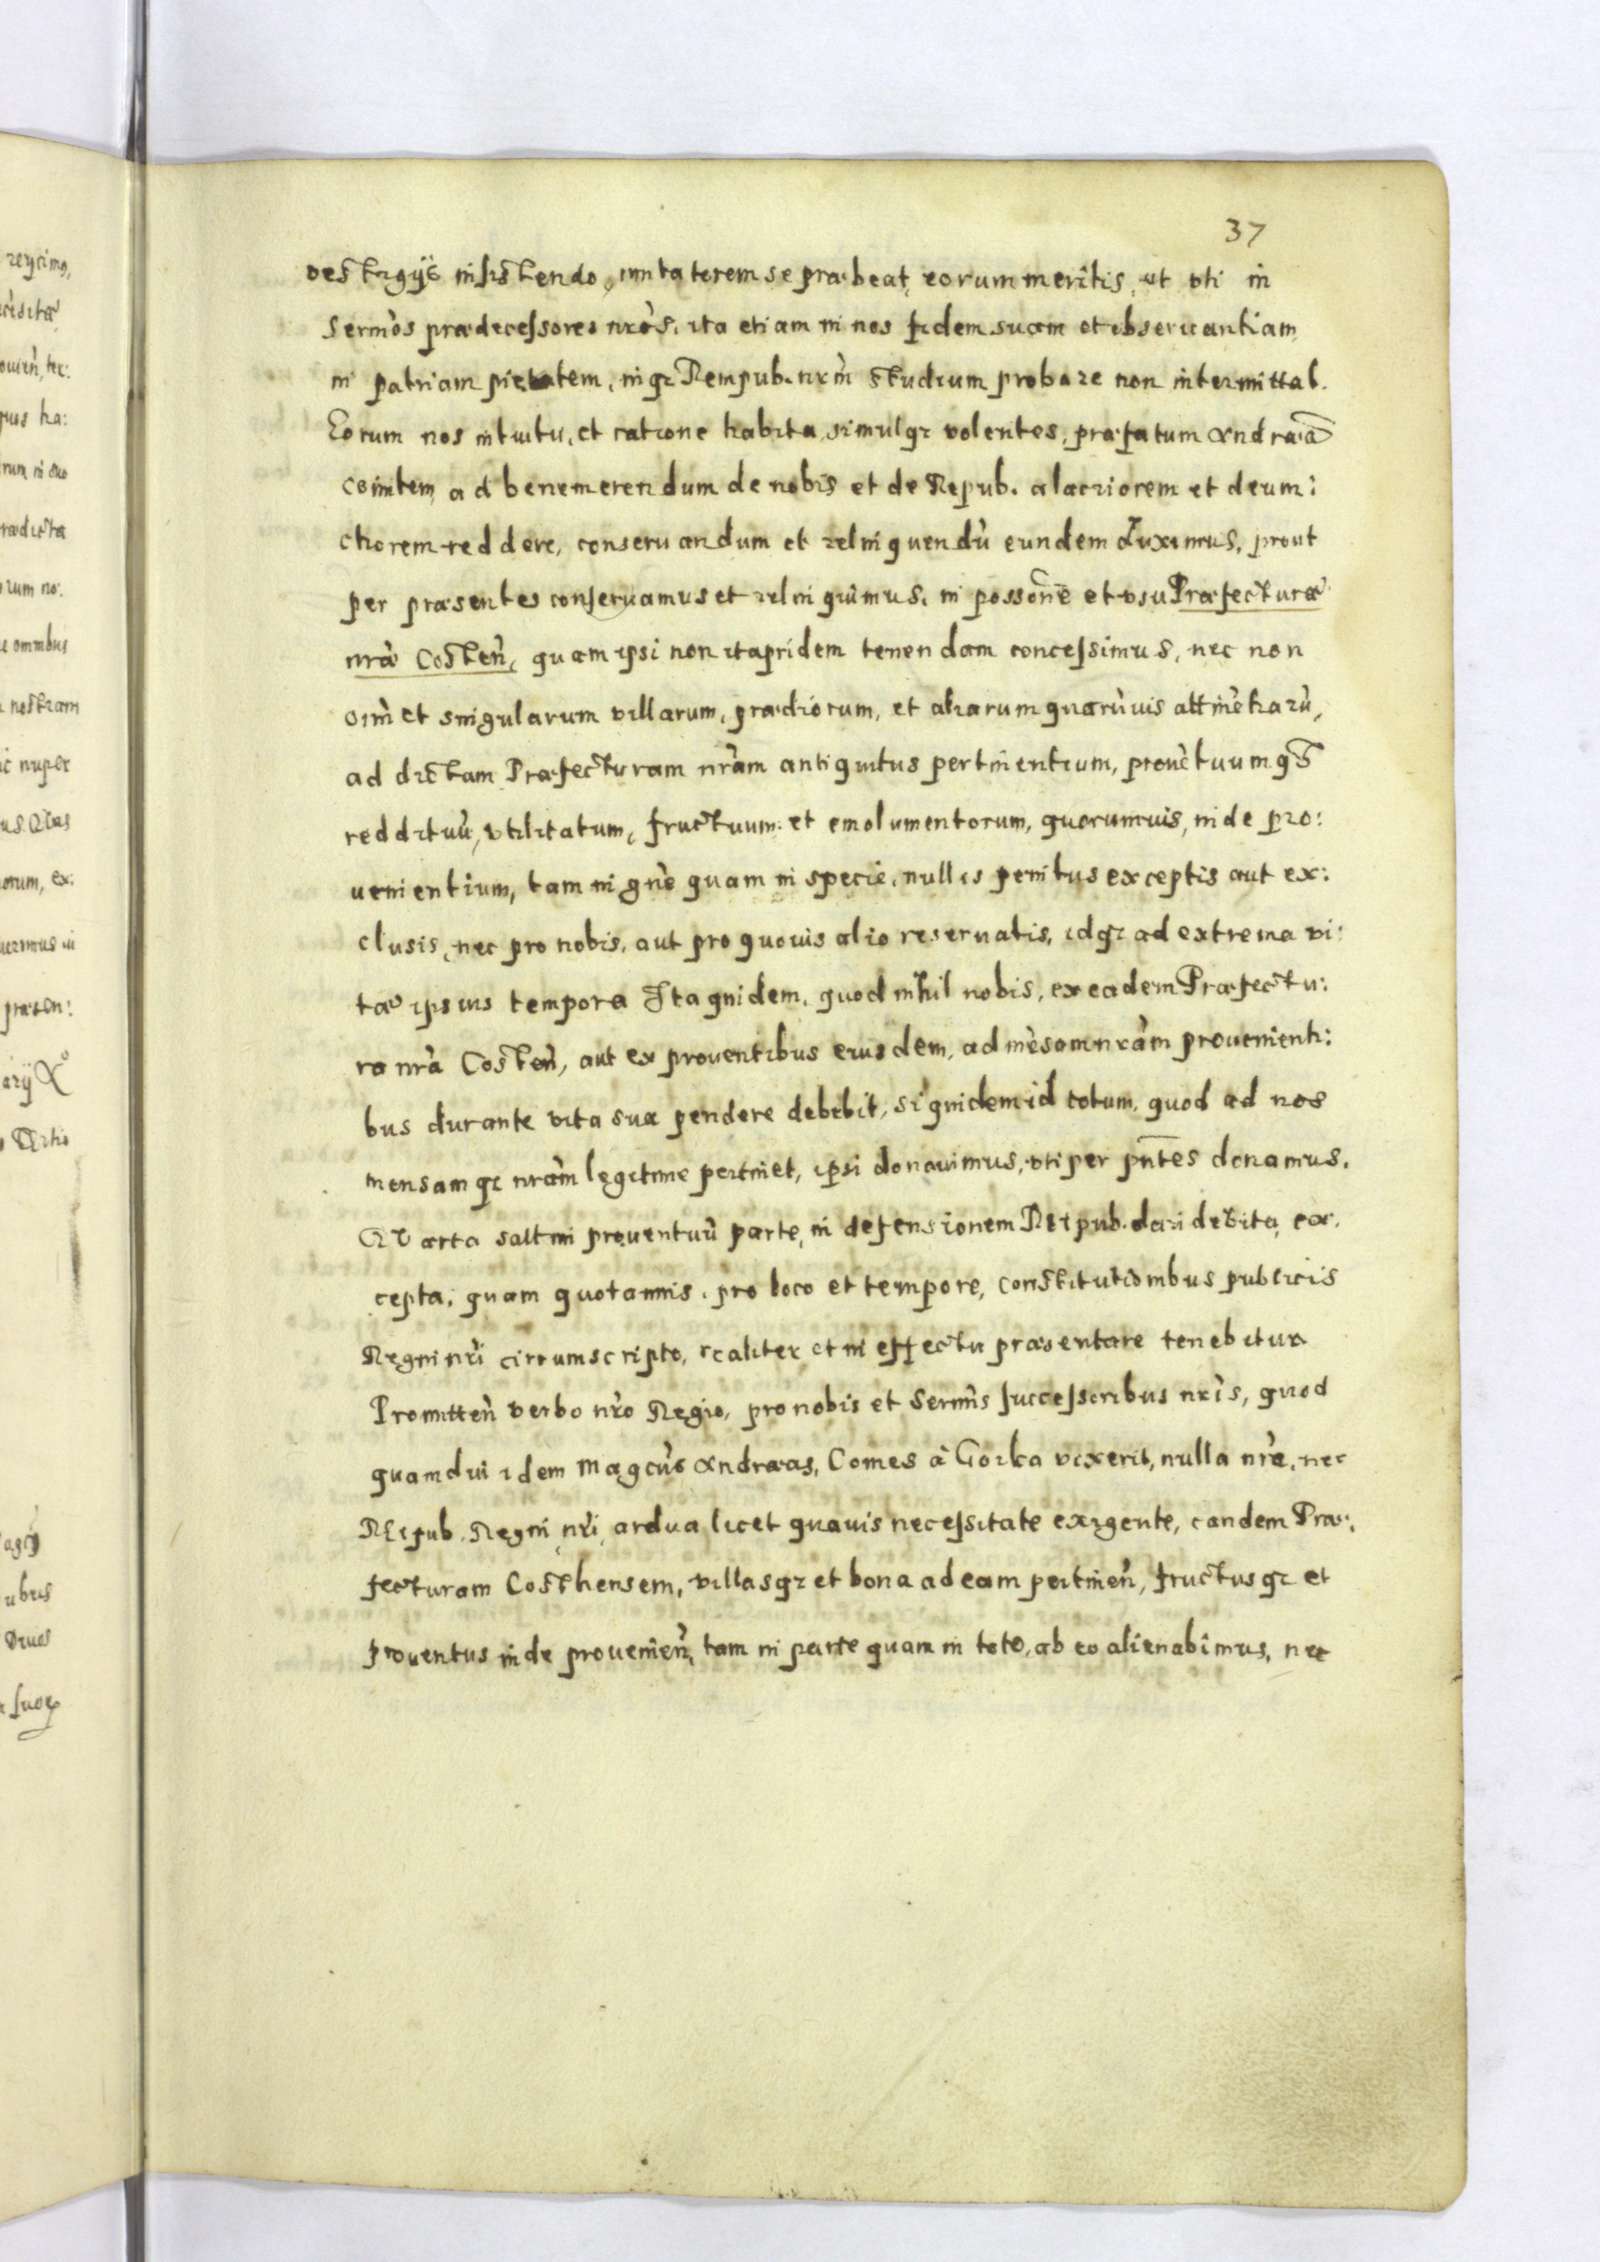 37
vestigijs insistendo, imitatorem se præbeat, eorum meritis, ut uti in
Sermos prædecessores nros, ita etiam in nos fidem suam et observantiam
in patriam pietatem, inqz Rempub. nrm studium probare non intermittat.
Eorum nos intuitu, et ratione habita, simulqz volentes, præfatum Andreã
comitem, ad benemerendum de nobis et de Repub. alacriorem et deum:
ctiorem reddere, conseruandum et relinquendũ eundem duximus, prout
per præsentes conseruamus et relinquimus, in possone et vsu Præfecturæ
nræ Costen, quam ipsi non itapridem tenendam concessimus, nec non
oim et singularum villarum, prædiorum, et aliarum quarũuis attinẽtiarũ,
ad dictam Præfecturam nram antiquitus pertinentium, prouẽtuumqz
reddituũ, vtilitatum, fructuum et emolumentorum, quorumuis, inde pro:
uenientium, tam in gne quam in specie, nullis penitus exceptis aut ex:
clusis, nec pro nobis, aut pro quouis alio reseruatis, idqz ad extrema vi:
tæ ipsius tempora Ita quidem, quod nihil nobis, ex eadem Præfectu:
ra nra Costen, aut ex prouentibus eiusdem, ad mẽsam nram prouenienti:
bus durante vita sua pendere debebit, siquidem id totum, quod ad nos
mensamqz nram legitime pertinet, ipsi donauimus, uti per pntes donamus.
QVarta saltim prouentuũ parte, in defensionem Reipub. dari debita, ex:
cepta, quam quotannis, pro loco et tempore, constitutionibus publicis
Regni nri circumscripto, realiter et in effectu præsentare tenebitur
Promitten verbo nro Regio, pro nobis et Sermis successoribus nris, quod
quamdiu idem Magcus Andreas, Comes à Gorka vixerit, nulla nra, nec
Reipub. Regni nri, ardua licet quauis necessitate exigente, eandem Præ:
fecturam Costhensem, villasqz et bona ad eam pertinen, fructusqz et
prouentus inde prouenien, tam in parte quam in toto, ab eo alienabimus, nec